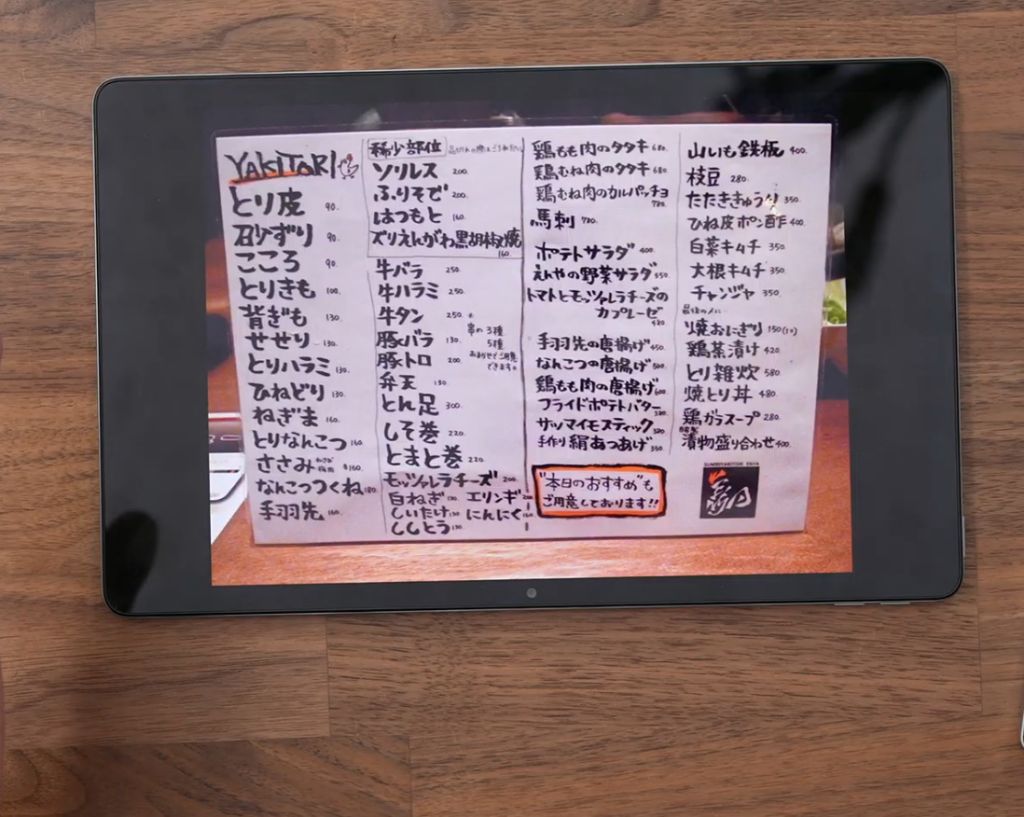 YAKITORI
とり皮 90.
砂ずり 90.
こころ 90.
とりきも 100.
背ぎも 130.
せせり 130.
とりハラミ 130.
ひねどり 130.
ねぎま 160.
とりなんこつ 160.
ささみ 160.
なんこつつくね 180.
手羽先 160.
稀少部位
ソリレス 200.
ふりそで 200.
はつもと 160.
ズリえんがわ黒胡椒焼 160.
牛バラ 250.
牛ハラミ 250.
牛タン 250.
豚バラ 130.
豚トロ 200
弁天 130.
とん足 300.
しそ巻 220.
とまと巻 220.
串の3種
5種
おまかせでご用意
できます。
モッツァレラチーズ 200.
白ねぎ 130. エリンギ 200
しいたけ 130. にんにく 160.
ししとう 130.
鶏もも肉のタタキ 680.
鶏むね肉のタタキ 680.
鶏むね肉のカルパッチョ 780.
馬刺 780.
ポテトサラダ 400.
えんやの野菜サラダ 550.
トマトとモッツァレラチーズの
カプレーゼ
手羽先の唐揚げ 450.
なんこつの唐揚げ 500.
鶏もも肉の唐揚げ 600.
フライドポテトバター
サツマイモスティック 520
手作り絹あつあげ 350
"本日のおすすめ"も
ご用意しております!!
山いも鉄板 400.
枝豆 280.
たたききゅうり 350.
ひね皮ポン酢 400.
白菜キムチ 350.
大根キムチ 350.
チャンジャ 350.
焼おにぎり 150(1コ)
鶏茶漬け 420.
とり雑炊 580.
焼とり丼 480.
鶏ガラスープ 280.
漬物盛り合わせ 400.